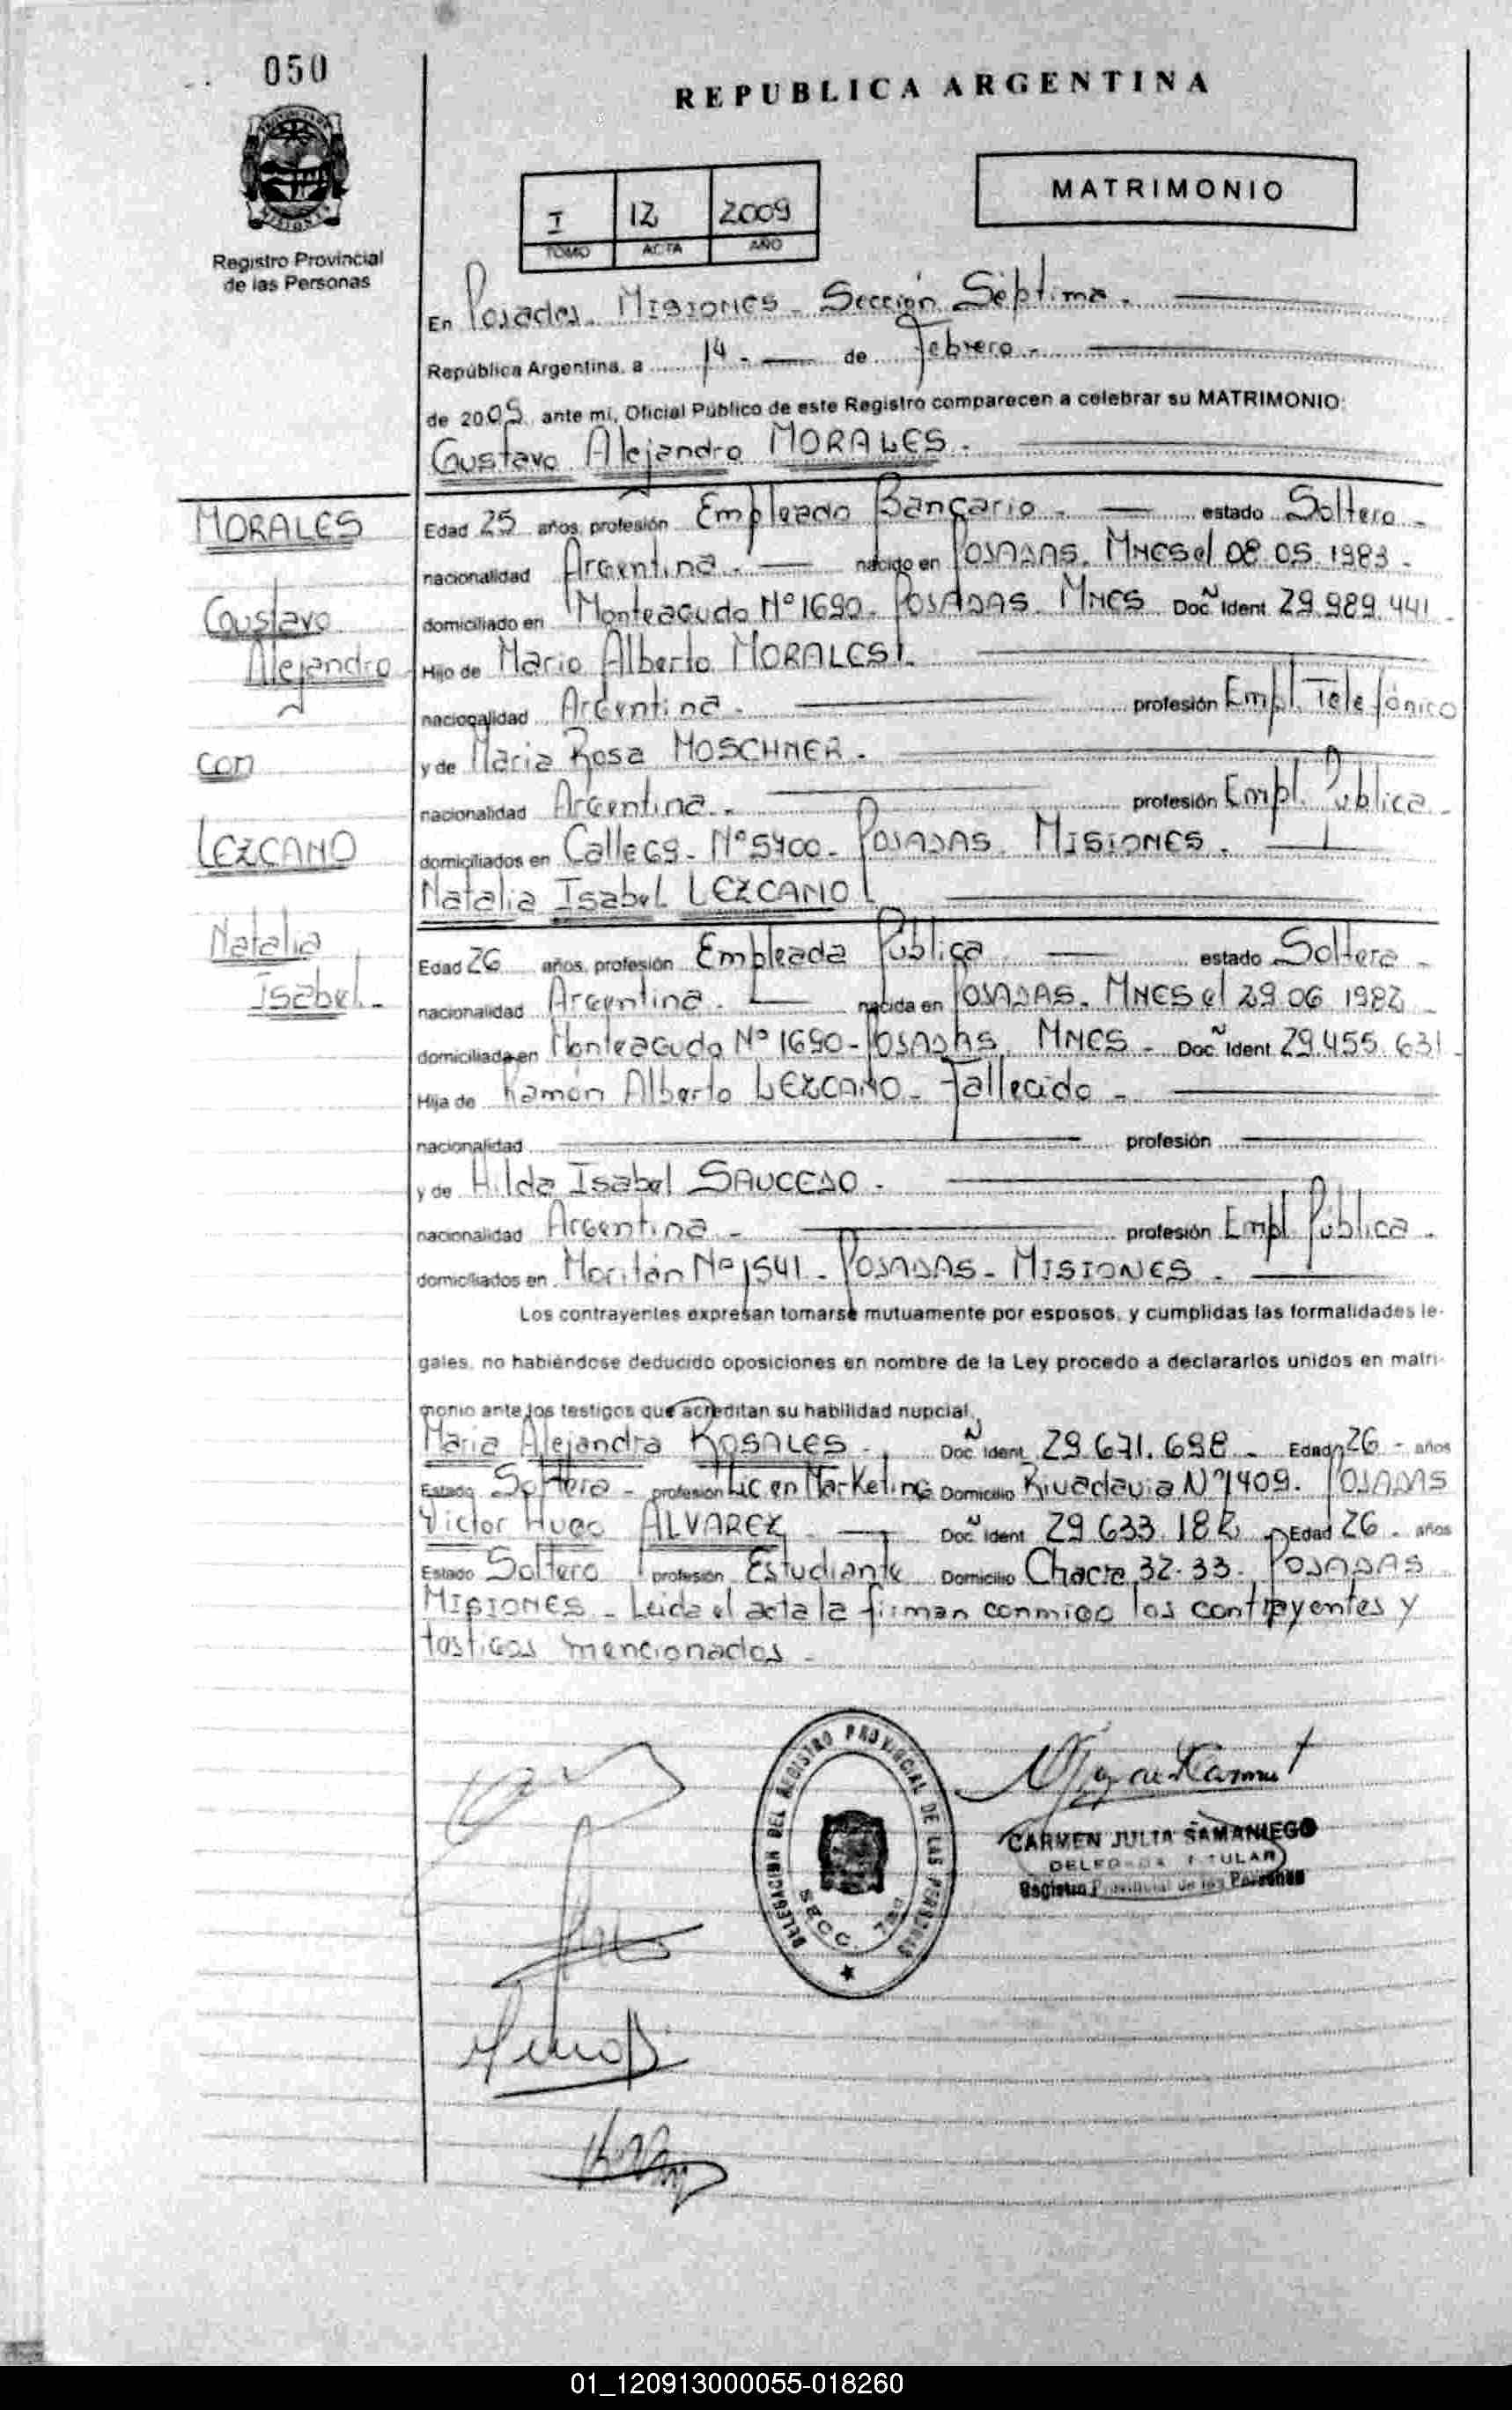 050
REPUBLICA ARGENTINA
MATRIMONIO
I 12 2009
TOMO ACTA AÑO
Registro Provincial
de las Personas
En Posadas. Misiones - Sección Séptima -
República Argentina, a 14 - de Febrero -
de 2009, ante mí, Oficial Público de este Registro comparecen a celebrar su MATRIMONIO:
Gustavo Alejandro MORALES -
MORALES
Gustavo
Alejandro
con
LEZCANO
Natalia
Isabel -
Edad 25 años, profesión Empleado Bancario - estado Soltero -
nacionalidad Argentina - nacido en Posadas. Mnes el 08.05.1983 -
domiciliado en Monteagudo Nº 1690 - Posadas. Mnes Doc. Ident. 29.989.441
Hijo de Mario Alberto MORALES
nacionalidad Argentina - profesión Empl. Telefónico
y de Maria Rosa MOSCHNER -
nacionalidad Argentina - profesión Empl. Pública -
domiciliados en Calle 69 - Nº 5400 - Posadas. Misiones -
Natalia Isabel LEZCANO
Edad 26 años, profesión Empleada Pública estado Soltera -
nacionalidad Argentina - nacida en Posadas. Mnes el 29.06.1982 -
domiciliada en Monteagudo Nº 1690 - Posadas. Mnes - Doc. Ident. 29.455.631 -
Hija de Ramón Alberto LEZCANO - Fallecido -
nacionalidad profesión
y de Hilda Isabel SAUCEDO -
nacionalidad Argentina - profesión Empl. Pública -
domiciliados en Moritán Nº 1541 - Posadas - Misiones -
Los contrayentes expresan tomarse mutuamente por esposos, y cumplidas las formalidades le-
gales, no habiéndose deducido oposiciones en nombre de la Ley procedo a declararlos unidos en matri-
monio ante los testigos que acreditan su habilidad nupcial.
Maria Alejandra ROSALES - Doc. Ident. 29.671.698 - Edad 26 - años
Estado Soltera - profesión Lic en Marketing Domicilio Rivadavia Nº 1409. Posadas
Victor Hugo ALVAREZ - Doc. Ident. 29.633.182 Edad 26 - años
Estado Soltero profesión Estudiante Domicilio Chacra 32-33. Posadas
Misiones - Leida el acta la firman conmigo los contrayentes y
testigos mencionados -
DELEGACION DEL REGISTRO PROVINCIAL DE LAS PERSONAS
SECC. 7ma
CARMEN JULIA SAMANIEGO
DELEGADA TITULAR
Registro Provincial de las Personas
01_120913000055-018260